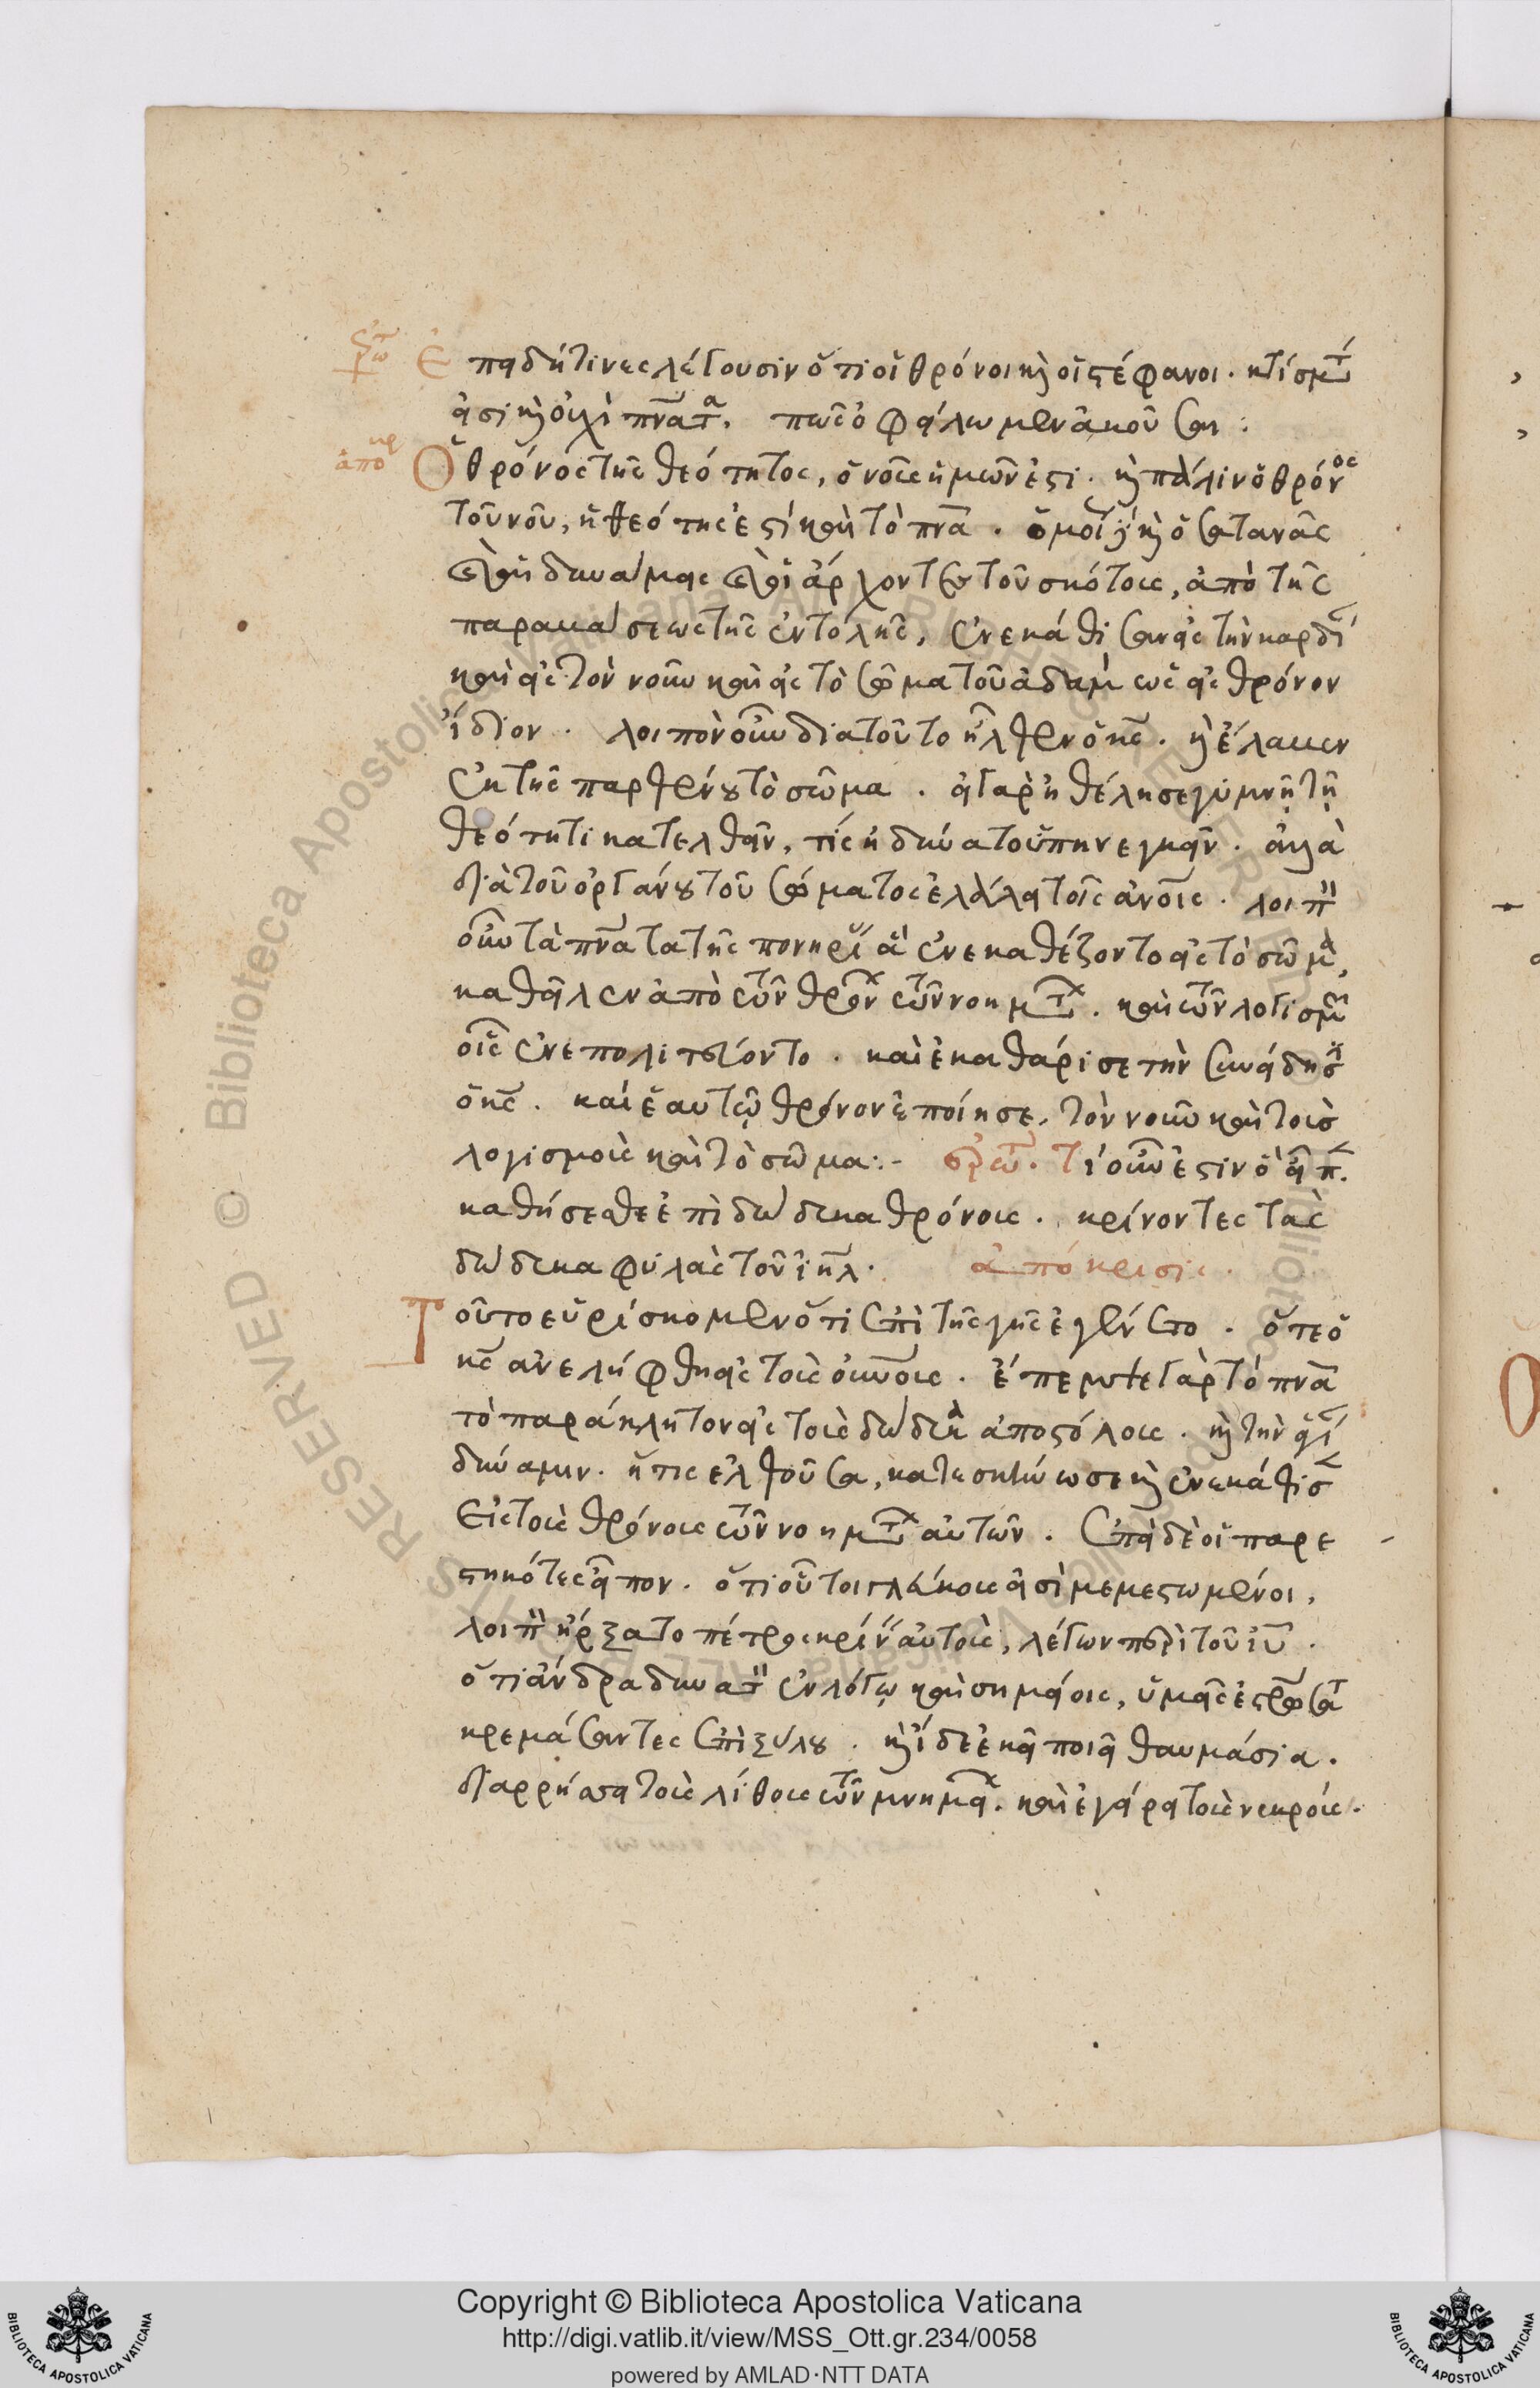 ἐρώ Ἐπειδή τινες λέγουσιν ὅτι οἱ θρόνοι καὶ οἱ στέφανοι. κτίσματά
εἰσι καὶ οὐχὶ πνατα. πῶς ὀφείλωμεν ἀκοῦσαι:
ἀποκρ Ὁ θρόνος τῆς θεότητος, ὁ νοῦς ἡμῶν ἐστι. καὶ πάλιν ὁ θρόνος
τοῦ νοῦ, ἡ θεότης ἐστὶ καὶ τὸ πνα. ὁμοίως καὶ ὁ σατανᾶς
καὶ αἱ δυνάμεις καὶ οἱ ἄρχοντες τοῦ σκότους, ἀπὸ τῆς
παραβάσεως τῆς ἐντολῆς, ἐνεκάθισαν εἰς τὴν καρδί
καὶ εἰς τὸν νοῦν καὶ εἰς τὸ σῶμα τοῦ ἀδαμ ὡς εἰς θρόνον
ἴδιον. λοιπὸν οὖν διατοῦτο ἦλθεν ὁ κς. καὶ ἔλαβεν
ἐκ τῆς παρθένου τὸ σῶμα. εἰ γὰρ ἠθέλησε γυμνῇ τῇ
θεότητι κατελθεῖν, τίς ἠδύνατο ὑπηνεγκεῖν. ἀλλὰ
διὰ τοῦ ὀργάνου τοῦ σώματος ἐλάλει τοῖς ἀνοις. λοιπὸν
οὖν τὰ πνατα τῆς πονηρί ἃ ἐνεκαθέζοντο εἰς τὸ σῶμα,
καθεῖλεν ἀπὸ τῶν θρόνων τῶν νοημάτων. καὶ τῶν λογισμῶν
οἷς ἐνεπολιτεύοντο. καὶ ἐκαθάρισε τὴν συνείδησιν
ὁ κς. καὶ ἑαυτῷ θρόνον ἐποίησε, τὸν νοῦν καὶ τοὺς
λογισμοὺς καὶ τὸ σῶμα:- ἐρώτ. τί οὖν ἐστιν ὃ εἶπε.
καθήσεσθε ἐπὶ δώδεκα θρόνους. κρίνοντες τὰς
δώδεκα φυλὰς τοῦ ιηλ. ἀπόκρισις.
Τοῦτο εὑρίσκομεν ὅτι ἐπὶ τῆς γῆς ἐγένετο. ὅτε ὁ
κς ἀνελήφθη εἰς τοὺς οὐνους. ἔπεμψε γὰρ τὸ πνα
τὸ παράκλητον εἰς τοὺς δώδεκα ἀποστόλους. καὶ τὴν ἁγί
δύναμιν. ἥτις ἐλθοῦσα, κατεσκήνωσε καὶ ἐνεκάθισεν
εἰς τοὺς θρόνους τῶν νοημάτων αὐτῶν. ἐπεὶ δὲ οἱ παρε
στηκότες εἶπον. ὅτι οὗτοι γλεύκους εἰσὶ μεμεστωμένοι,
λοιπὸν ἤρξατο πέτρος κρίνειν αὐτοὺς, λέγων περὶ τοῦ ιυ.
ὅτι ἄνδρα δυνατὸν ἐν λόγῳ καὶ σημείοις, ὑμεῖς ἐσταυρώσατε
κρεμάσαντες ἐπὶ ξύλου. καὶ ἴδε ἐκεῖ ποιεῖ θαυμάσια.
διαρρήσσει τοὺς λίθους τῶν μνημείων. καὶ ἐγείρει τοὺς νεκρούς.
Copyright © Biblioteca Apostolica Vaticana
http://digi.vatlib.it/view/MSS_Ott.gr.234/0058
powered by AMLAD·NTT DATA